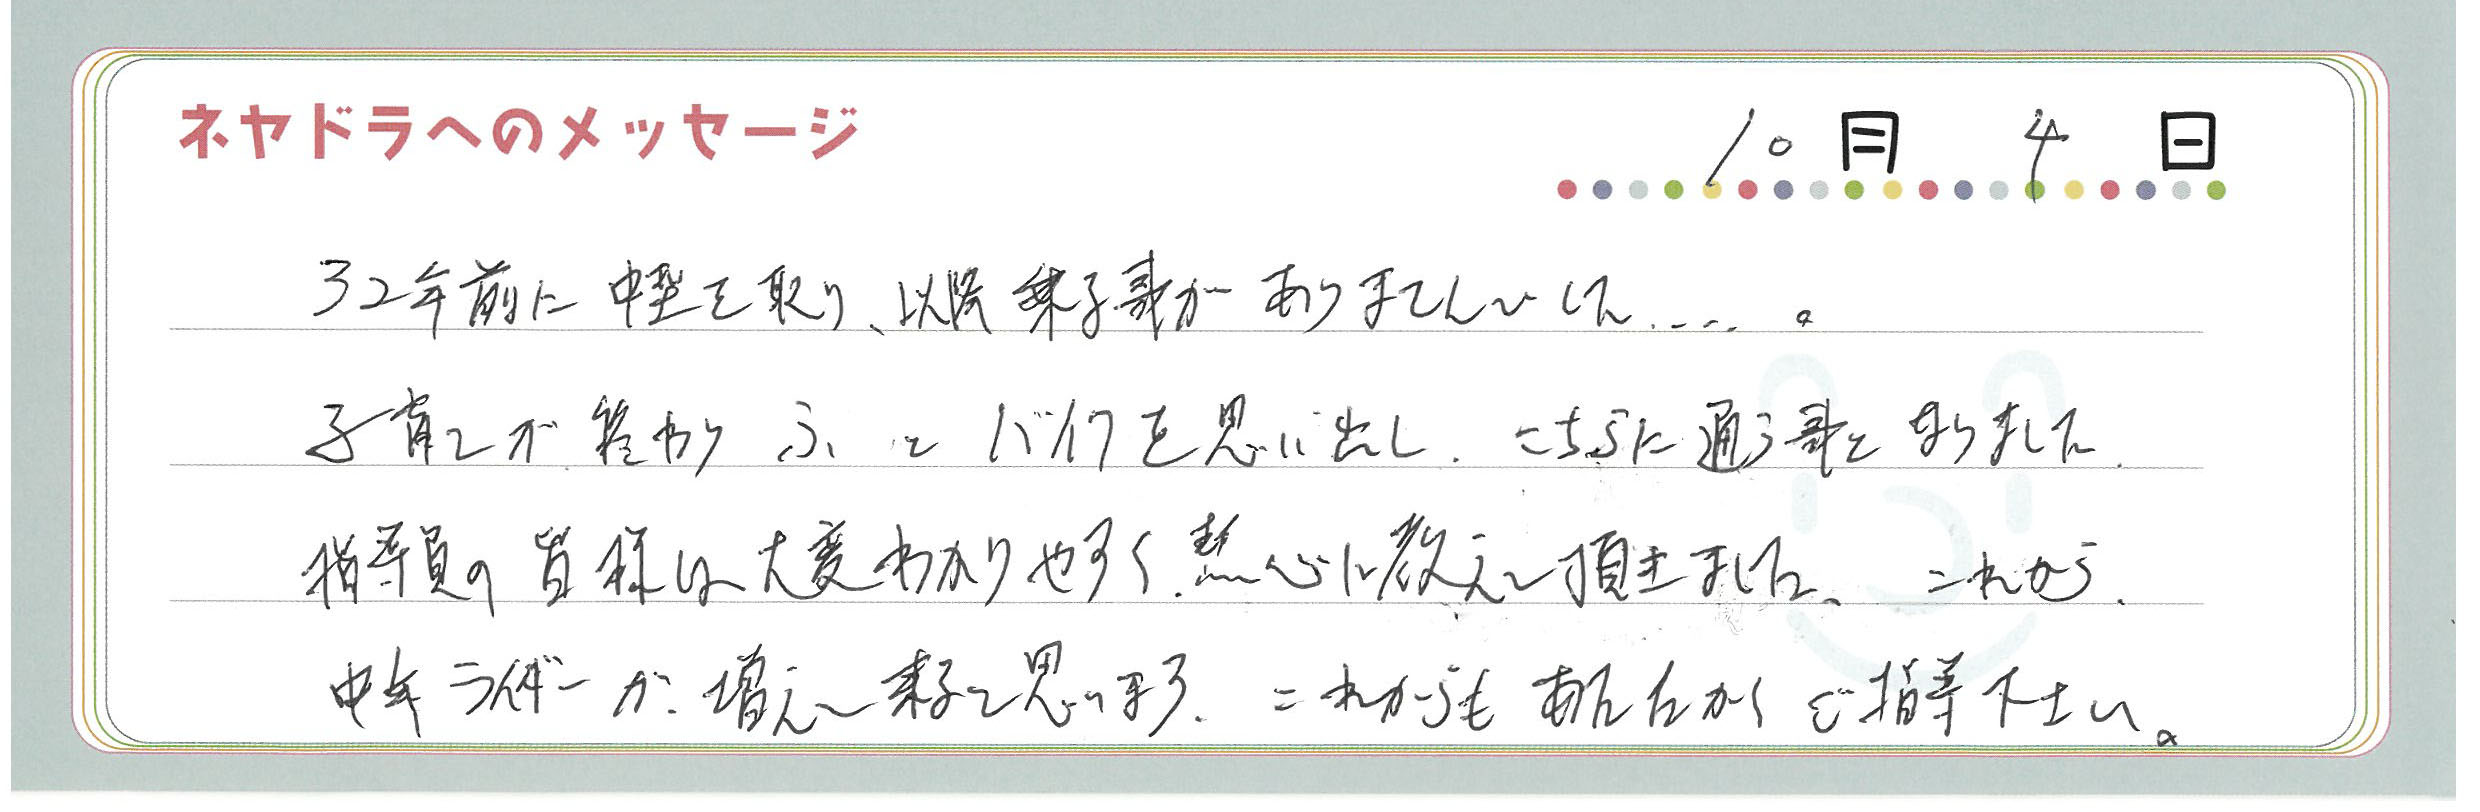 ネヤドラへのメッセージ
10月 4日
32年前に中型を取り、以降乗る事がありませんでした....。
子育てが終わりふっとバイクを思い出し、こちらに通う事となりました。
指導員の皆様は大変わかりやすく、熱心に教えて頂きました。これから、
中年ライダーが増えて来ると思います。これからもあたたかくご指導下さい。